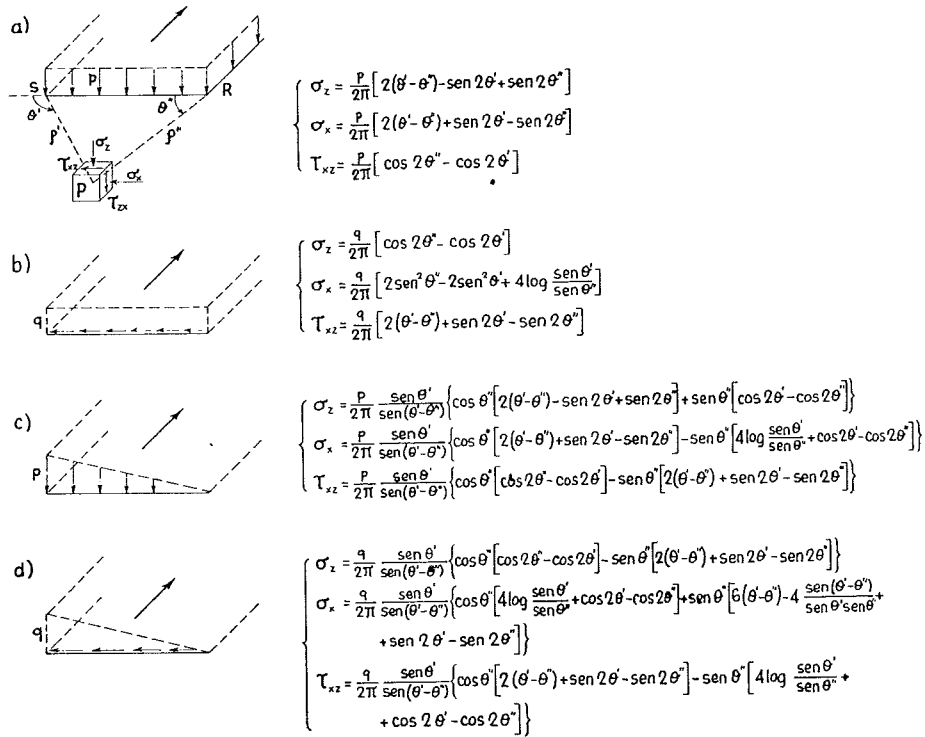 a)
p
S
R
θ'
θ"
ρ'
ρ"
σz
τxz
σx
P
τzx
σz = p/2π [2(θ'-θ")-sen 2θ'+sen 2θ"]
σx = p/2π [2(θ'-θ")+sen 2θ'-sen 2θ"]
τxz = p/2π [cos 2θ"-cos 2θ']
b)
q
σz = q/2π [cos 2θ"-cos 2θ']
σx = q/2π [2sen²θ"-2sen²θ'+4log senθ'/senθ"]
τxz = q/2π [2(θ'-θ")+sen 2θ'-sen 2θ"]
c)
p
σz = p/2π senθ'/sen(θ'-θ") {cosθ"[2(θ'-θ")-sen 2θ'+sen 2θ"]+senθ"[cos2θ'-cos2θ"]}
σx = p/2π senθ'/sen(θ'-θ") {cosθ"[2(θ'-θ")+sen2θ'-sen2θ"]-senθ"[4log senθ'/senθ" +cos2θ'-cos2θ"]}
τxz = p/2π senθ'/sen(θ'-θ") {cosθ"[cos2θ"-cos2θ']-senθ"[2(θ'-θ")+sen2θ'-sen2θ"]}
d)
q
σz = q/2π senθ'/sen(θ'-θ") {cosθ"[cos2θ"-cos2θ']-senθ"[2(θ'-θ")+sen2θ'-sen2θ"]}
σx = q/2π senθ'/sen(θ'-θ") {cosθ"[4log senθ'/senθ" +cos2θ'-cos2θ"]+senθ"[6(θ'-θ")-4 sen(θ'-θ")/senθ'senθ" +
+sen 2θ'-sen 2θ"]}
τxz = q/2π senθ'/sen(θ'-θ") {cosθ"[2(θ'-θ")+sen2θ'-sen2θ"]-senθ"[4log senθ'/senθ" +
+cos 2θ'-cos 2θ"]}